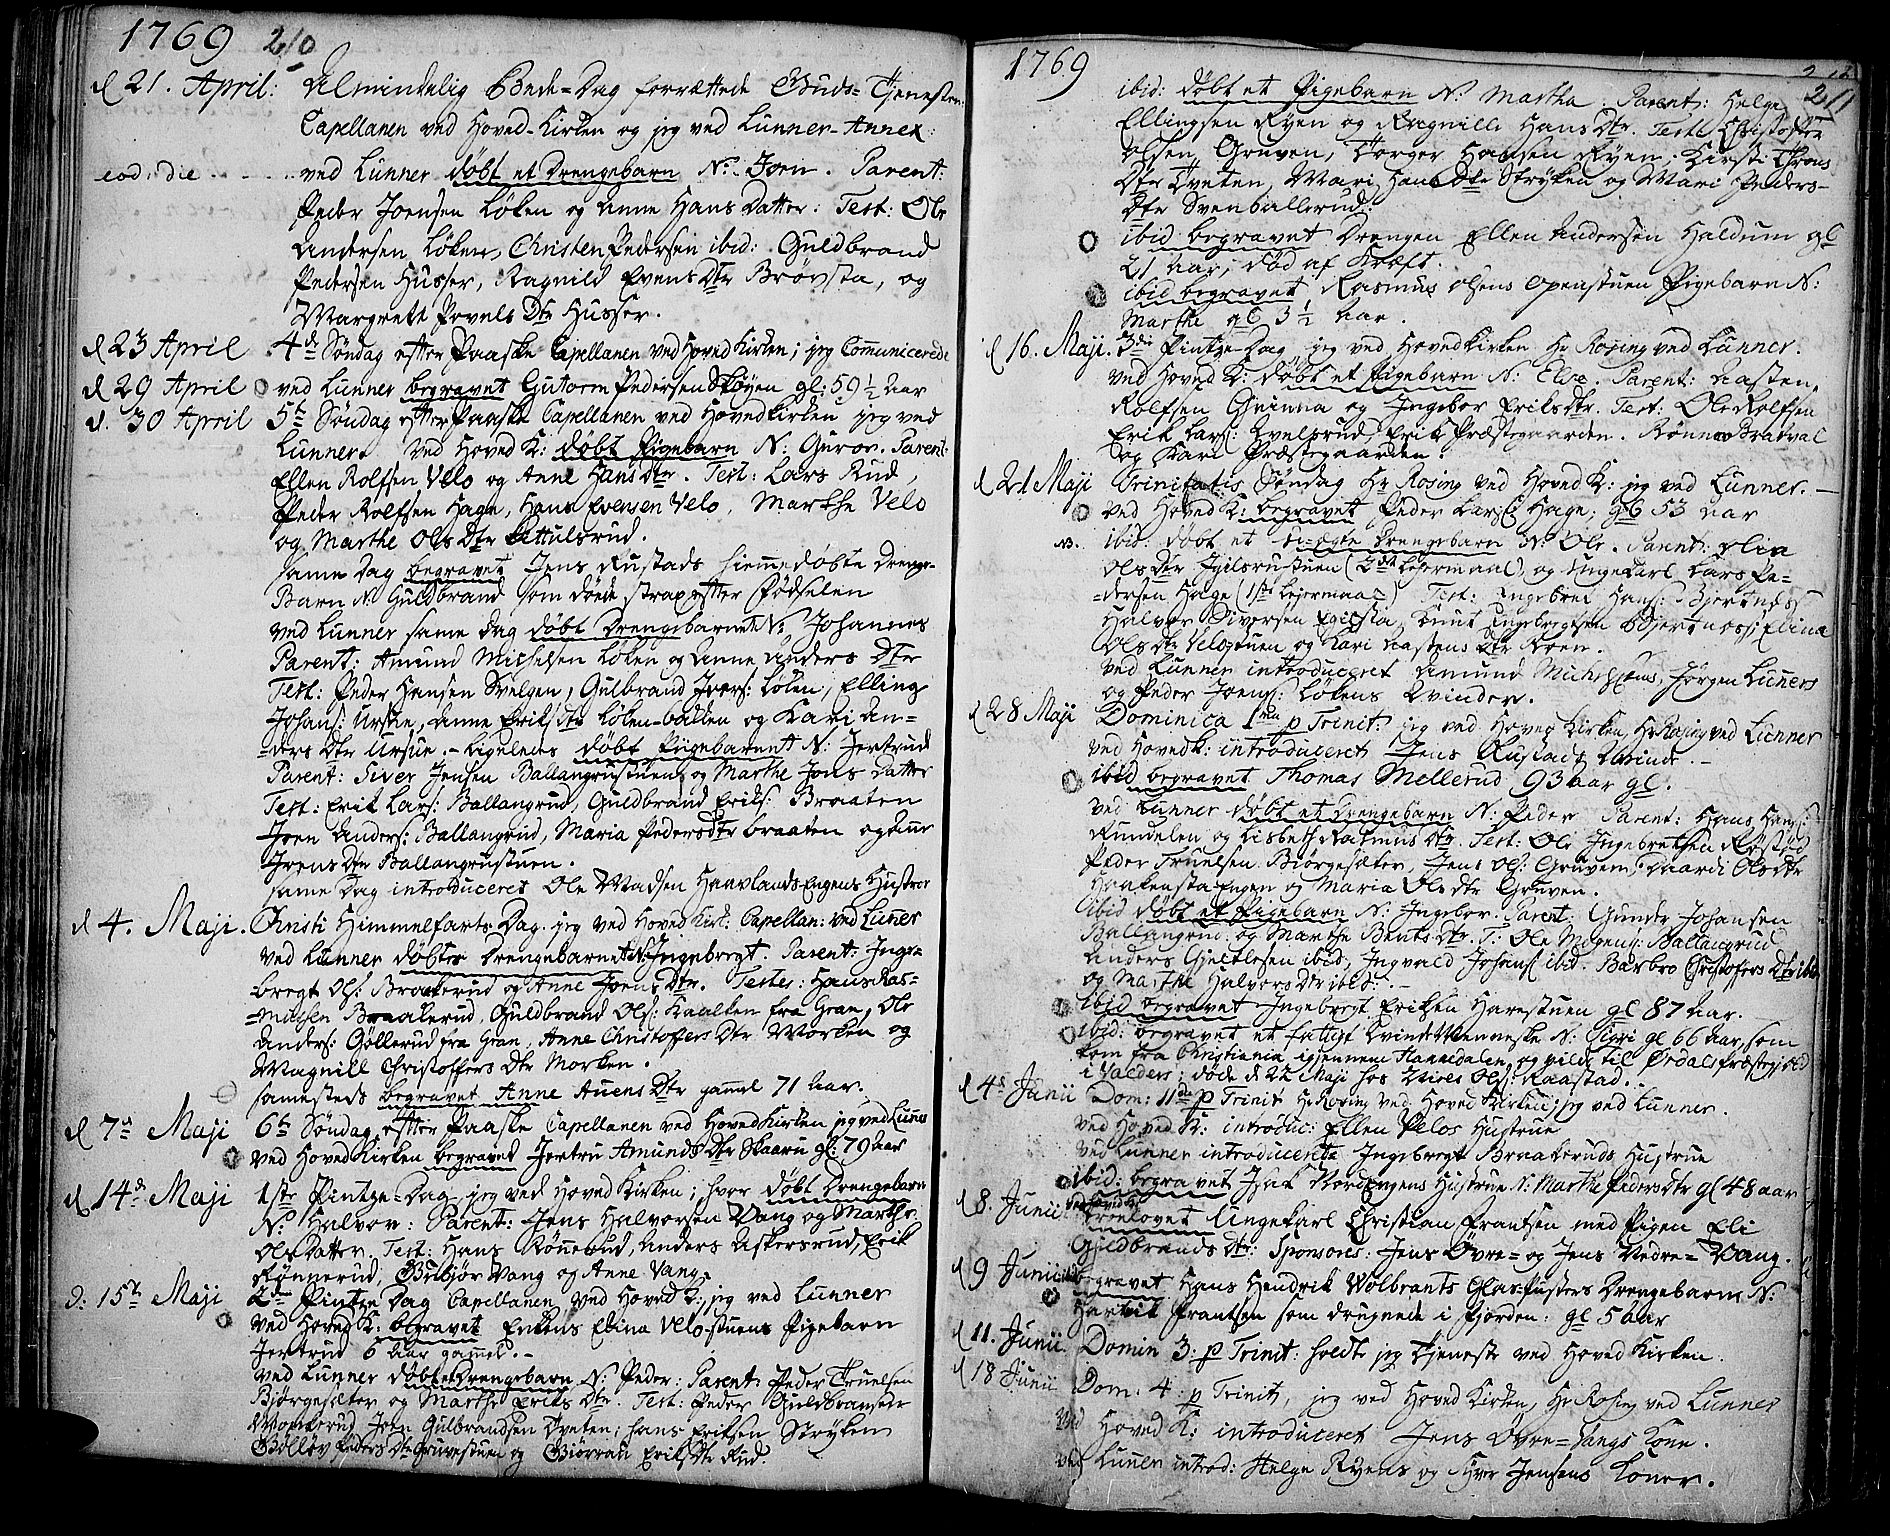 1769 210
d 21. April: Almindelig Bede-Dag forrættede Guds-Tjenesten
Capellanen ved Hoved-Kirken og jeg ved Lunner-Annex:
eod: die ved Lunner døbt et Drengebarn N: Joen. Parent:
Peder Joensen Løken og Anne Hans Datter: Test: Ole
Andersen Løken, Christen Pedersen ibid: Guldbrand
Pedersen Husser, Ragnild Evens Dtr Brøvsta, og
Margrett Povels Dtr Husser.
d 23 April 4de Søndag efter Paaske Capellanen ved Hoved Kirken; jeg Communicerede
d 29 April ved Lunner begravet Gutorm Pedersen Skøyen gl: 59 ½ Aar
d. 30 April 5te Søndag efter Paaske Capellanen ved Hovedkirken jeg ved
Lunner. Ved Hoved K: døbt Pigebarn N: Guroe. Parent:
Ellen Rolfsen Velo og Anne Hans Dtr. Test: Lars Rud,
Peder Rolfsen Hage, Hans Evensen Velo, Marthe Velo
og Marthe Ols Dtr Kittulsrud.
samme Dag begravet Jens Rustads hiemmedøbte Drenge-
Barn N: Guldbrand som døede strax efter Fødselen
ved Lunner same dag døbt Drengebarnet N: Johannes
Parent: Amund Michelsen Løken og Anne Anders Dtr
Test: Peder Hansen Svelgen, Gulbrand Ivers: Løken, Elling
Johans: Urskie, Anne Eriks dtr Løken-bakken og Kari An-
-ders Dtr Urskie. - Ligeledes døbt Piigebarnet N: Jertrud
Parent: Siver Jensen Ballangrustuen, og Marthe Jons Datter
Test: Erik Lars: Ballangrud, Guldbrand Eriks: Braaten
Joen Anders: Ballangrud, Maria Peders dtr Braaten og Anne
Jrens Dtr Ballangrustuen.
same Dag introduceret Ole Madsen Haavlands-Engens Hustroe
d 4. Maji. Christi Himmelfarts Dag. jeg ved Hoved Kirk: Capellan: ved Lunner
ved Lunner døbtes Drengebarnet N: Ingebregt. Parent: Inge-
-bregt Ols: Braakerud og Anne Joens Dtr. Testes: Hans Ras-
-mussen Braakerud, Guldbrand Ols: Kaalken fra Gran, Ole
Anders: Gøllerud fra Gran, Anne Christoffers Dtr Morken og
Magnill Christoffers Dtr Morken.
samesteds begravet Anne Auens Dtr gammel 71 Aar.
d 7de Maji 6te Søndag efter Paaske Capellanen ved Hoved Kirken jeg ved Lunner
ved Hoved Kirken begravet Jertru Amunds Dtr Skaaru gl: 79 Aar
d 14de Maji 1ste Pintze-Dag jeg ved Hoved Kirken; hvor døbt Drengebarn
N: Halvor: Parent: Jens Halvorsen Vang og Marthe
Ols Datter. Test: Hans Rønnerud, Anders Askersrud, Erik
Rønnerud, Gubjør Vang og Anne Vang.
d: 15de Maji 2den Pintze Dag Capellanen ved Hoved K: jeg ved Lunner
ved Hoved K: begravet Enkens Elina Velo-stuens Pigebarn
Jertrud 6 Aar gammel. -
ved Lunner døbt et Drengebarn N: Peder: Parent: Peder Truelsen
Biørgesæter og Marthe Eriks Dtr. Test: Peder Guldbransen
Joen Gulbrandsen Tveten; Hans Eriksen Stryken
Peders Dtr Gruvestuen og Eriks Dtr Rud.
1769 211
ibid: døbt et Pigebarn N: Martha. Parent: Helge
Ellingsen Ryen og Ragnille Hans Dtr. Test: Christoffer
Olsen Gruven, Torger Hansen Ryen, Kirsti Throns
Dtr Tveten, Mari Hans Dtr Stryken og Mari Peders-
Dtr Svenballerud.
ibid begravet Drengen Ellen Andersen Haldum gl
21 Aar, død af Kræft.
ibid begravet Rasmus Olsens Openstuen Pigebarn N:
Marthe gl 3 ½ Aar.
d 16. Maji. 3die Pintze-Dag jeg ved Hovedkirken Hr Rosing ved Lunner.
ved Hoved K: døbt et Pigebarn N: Else. Parent: Aasten
Rolfsen Grinna og Ingebor Eriks dtr. Test: Ole Rolfsen
Erik Lars: Avelsrud, Erik Præstegaarden. Rønnov Bratval
og Kari Præstegaarden.
d 21 Maji Trinitatis Søndag Hr Rosing ved Hoved K: jeg ved Lunner. -
ved Hoved K: begravet Peder Lars: Hage, gl 53 Aar
NB. ibid: døbt et u-ægte Drengebarn N: Ole. Parent: Elia
Ols Dtr Egilsrustuen (2det Lejermaal), og Ungekarl Lars Pe-
-dersen Hage (1ste Lejermaal) Test: Engebret Hans: Bjertnæss
Halvor Siversen Egilsta, Knut Engebregtsen Bjertness, Elina
Ols Dtr Velostuen og Kari Aastens Dtr Roen.
ved Lunner introduceret Amund Michelsens, Jørgen Lunners
og Peder Joens: Løkens Qvinder.
d 28 Maji Dominica 1ma p Trinit: jeg ved Hoved Kirken, Hr Rosing ved Lunner
ved Hoved K: introduceret Jens Rustads Qvinde. -
ibid begravet Thomas Mellerud 93 aar gl.
ved Lunner døbt et Drengebarn N: Peder Parent: Hans Hans:
Rundelen og Lisbeth Rasmus Dtr. Test: Ole Ingebretsen Røstød
Peder Truelsen Biørgesæter, Jens Ols: Gruven, Taardi Ols dtr
Haakensta-Engen og Maria Ols dtr Gruven.
ibid døbt et Pigebarn N: Ingebor. Parent: Gunder Johansen
Ballangrud og Marthe Bents Dtr. T: Ole Mogens: Ballangrud
Anders Gjeltlesen ibid, Ingvald Johans: ibid. Barbro Christoffers Dtr ibid
og Marthe Halvors Dtr ibid:. -
ibid begravet Ingebregt Eriksen Harestuen gl 87 Aar. -
ibid: begravet et fattigt Qvinde Menneske N: Siri gl 66 Aar, som
kom fra Christiania igjennem Hannedalen, og vilde til Ørdals Præstegield
i Valders; døde d 22 Maji hos Niels Ols: Raastad.
d 4de Junii Dom: 11da p Trinit Hr Rosing ved Hoved Kirken; jeg ved Lunner.
ved Hoved K: introduc: Ellen Velos Hustrue
ved Lunner introducerede Ingebregt Braakeruds Hustrue
ibid: begravet Isak Nordengens Hustrue N: Marthe Peders Dtr gl 48 aar
d 8. Junii ved Hoved K: trolovet Ungekarl Christian Frantsen med Pigen Eli
Guldbrands Dtr: Sponsores: Jens Øvre- og Jens Nedre-Vang.
d 9 Junii ibid begravet Hans Hendrik Wolbrants Glas-Pusters Drengebarn N:
Hartvik Frantsen som drugnede i Fjorden: gl 5 aar
d 11. Junii. Domin 3: p Trinit: holdte jeg Tjeneste ved Hoved Kirken.
d 18 Junii Dom: 4: p Trinit, jeg ved Hoved Kirken, Hr Rosing ved Lunner
Ved Hoved K: introduceret Jens Øvre-Vangs Kone.
ved Lunner introd: Helge Ryens og Iver Jensens Koner.